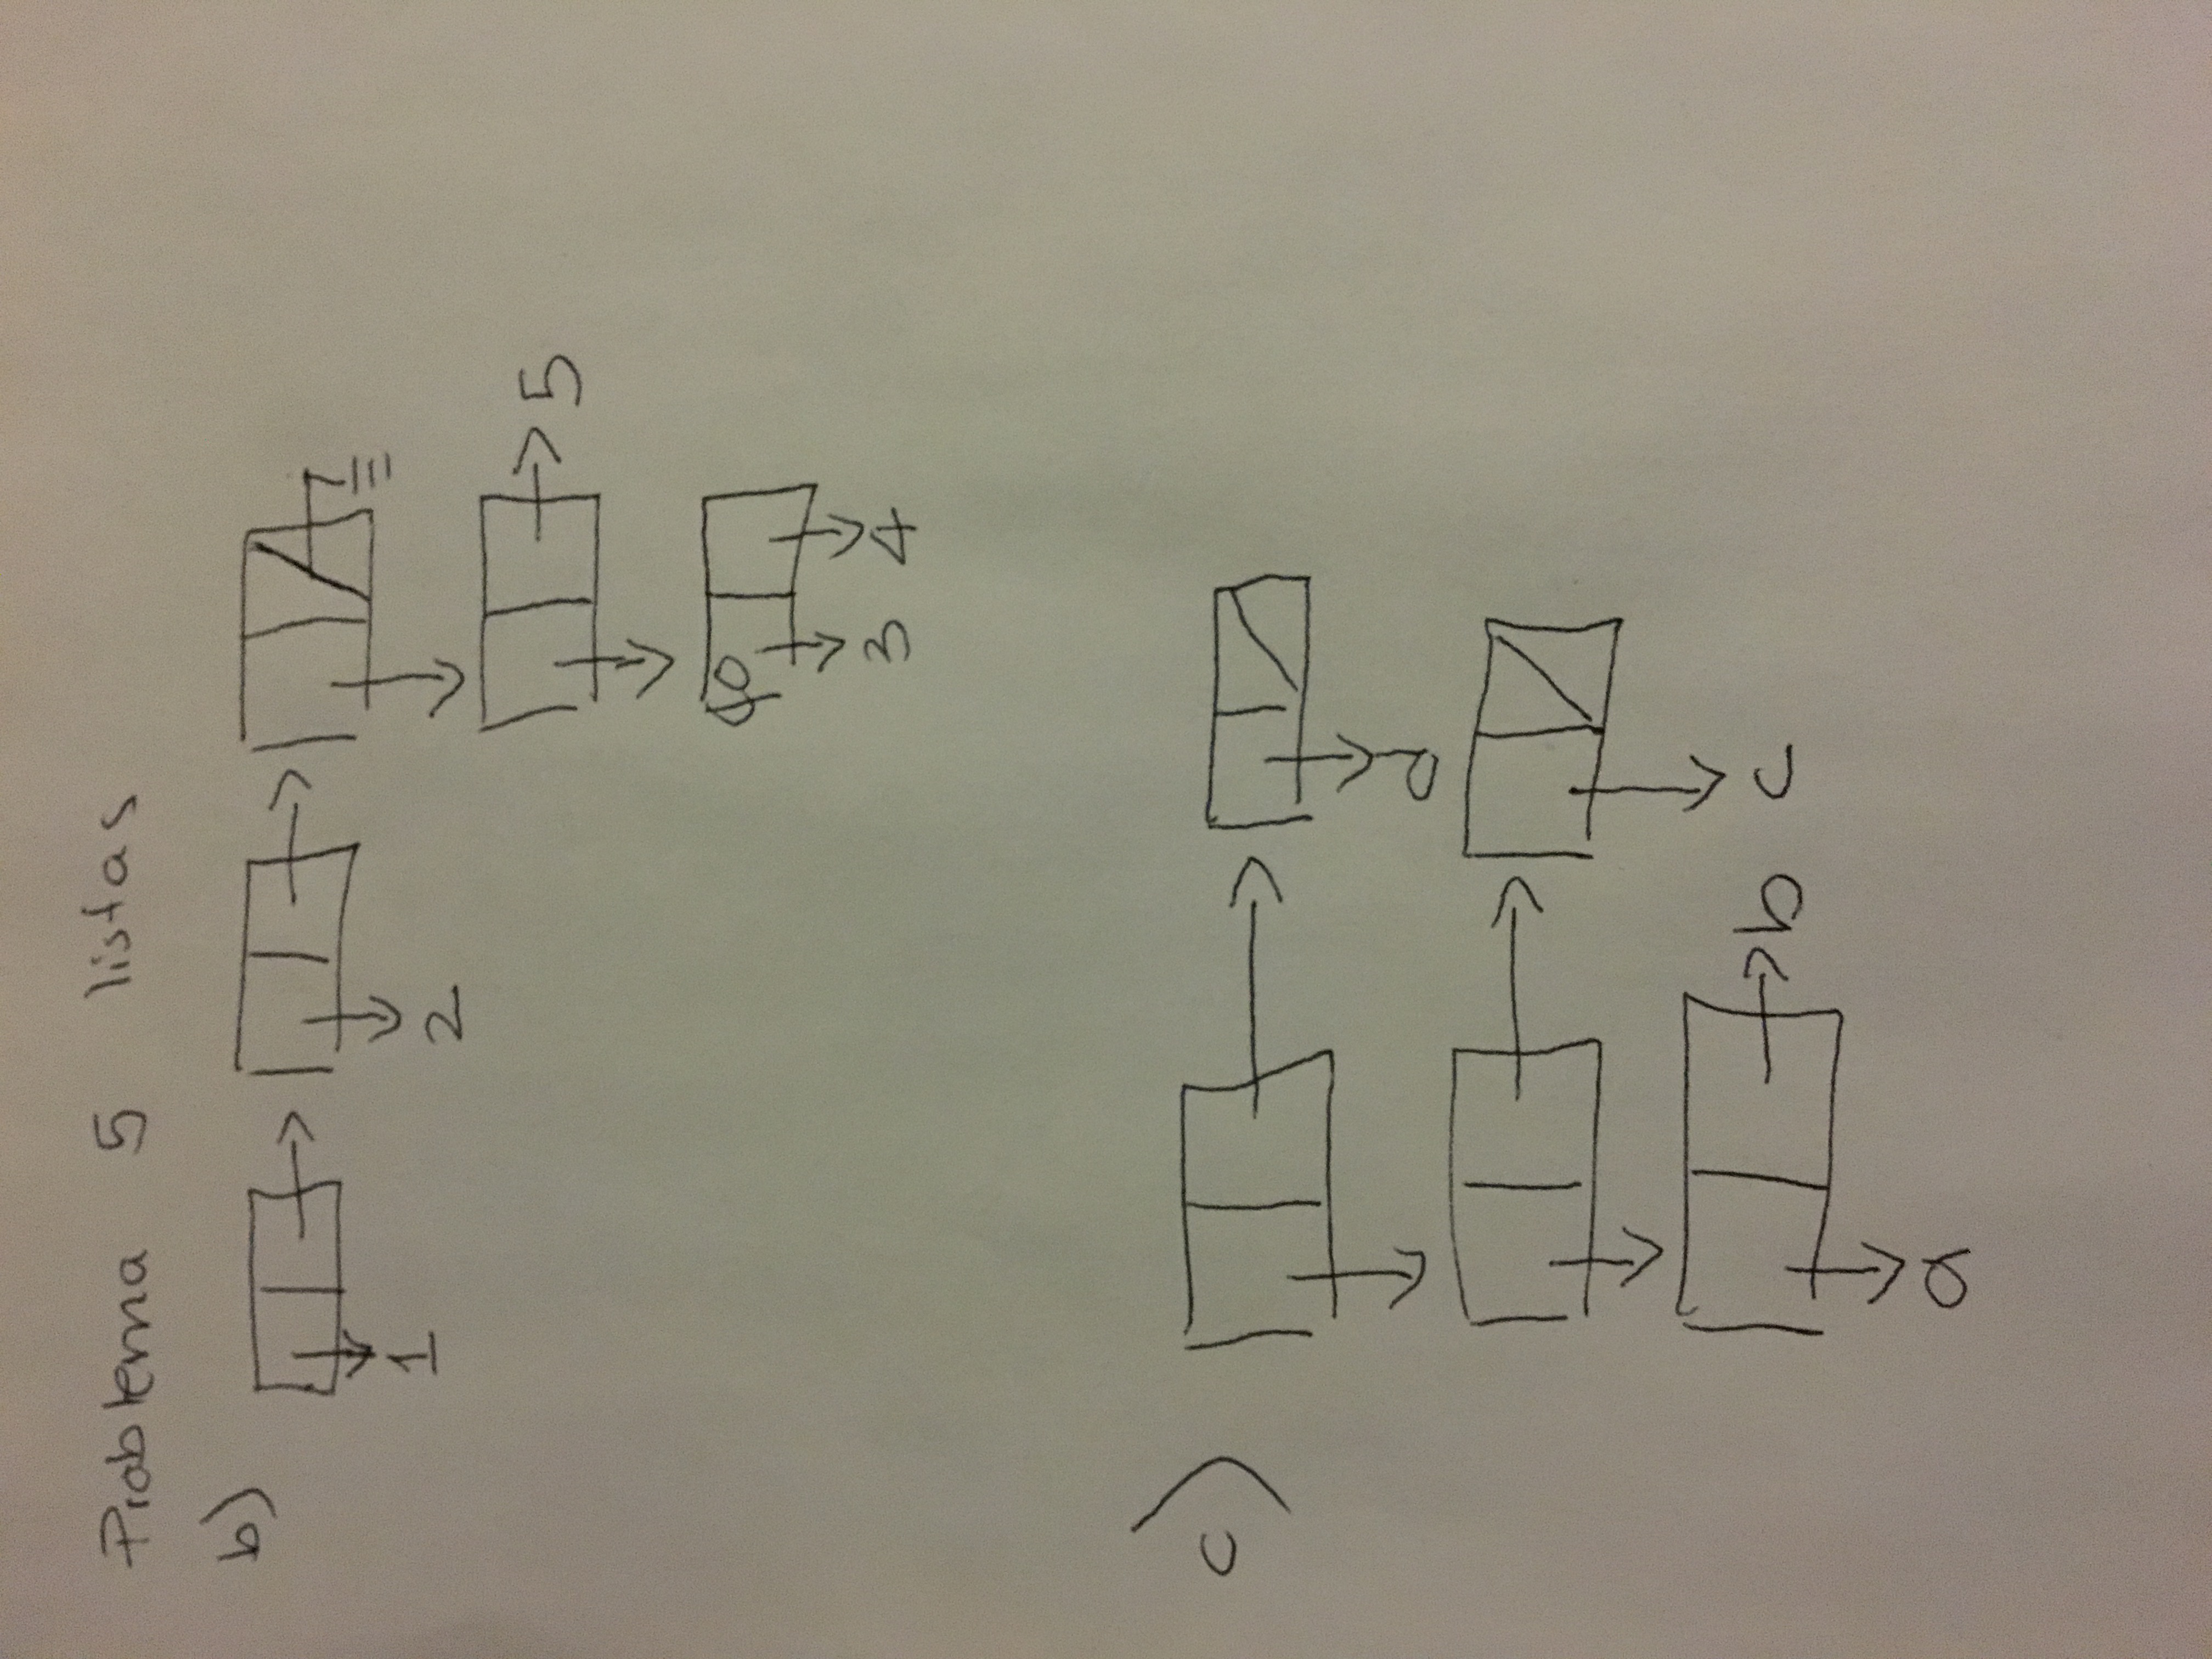 Problema 5 listas
b)
1
2
5
3 4
c)
d
b c
a